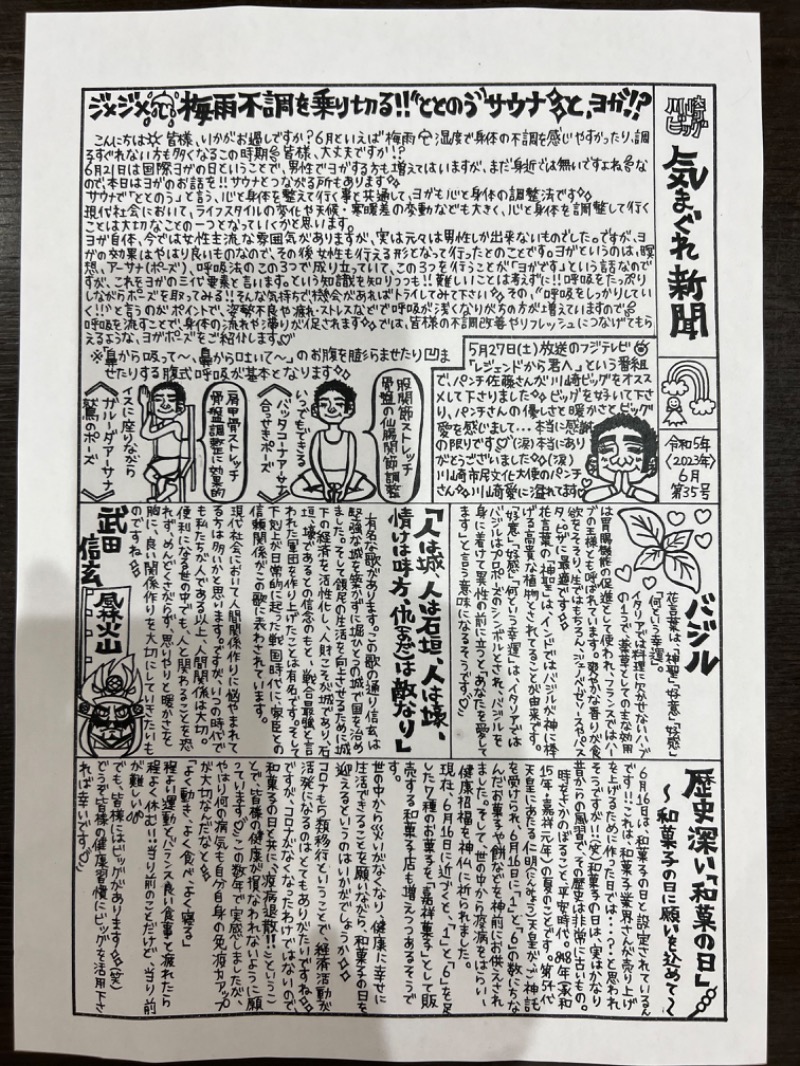 川崎ビッグ
気まぐれ新聞
令和5年
〈2023年〉
6月
第35号
ジメジメ梅雨不調を乗り切る!!"ととのう"サウナと、ヨガ!?
こんにちは 皆様、いかがお過しですか?6月といえば梅雨 湿度で身体の不調を感じやすかったり、調
るすぐれない方も多くなるこの時期 皆様、大丈夫ですか!?
6月21日は国際ヨガの日ということで、男性でヨガする方も増えてはいますが、まだ身近では無いですよね な
ので、本日はヨガのお話を!!サウナとつながる所もあります
サウナで「ととのう」と言う、心と身体を整えて行く事と共通して、ヨガも心と身体の調整法です
現代社会において、ライフスタイルの変化や天候・寒暖差の変動なども大きく、心と身体を調整して行く
ことは大切なことの一つとなっていくかと思います。
ヨガ自体、今では女性主流な雰囲気がありますが、実は元々は男性しか出来ないものでした。ですが、ヨ
ガの効果はやはり良いものなので、その後女性も行える形となって行ったとのことです。ヨガというのは、瞑
想、アーサナ(ポーズ)、呼吸法のこの3つで成り立っていて、この3つを行うことが「ヨガです」という話なので
すが、これをヨガの三代要素と言います。という知識を知りつつも!!難しいことは考えずに!!呼吸をたっぷり
しながらポーズを取ってみる!!そんな気持ちで機会があればトライしてみて下さい その、"呼吸をしっかりしてい
く!!"と言うのがポイントで、姿勢不良や疲れ・ストレスなどで呼吸が浅くなりがちの方が増えていますので
呼吸を流すことで、身体の流れや滞りが促されます では、皆様の不調改善やリフレッシュにつなげてもら
えるような、ヨガポーズをご紹介します
※「鼻から吸って〜、鼻から吐いて〜」のお腹を膨らませたり凹ま
せたりする腹式呼吸が基本となります
股関節ストレッチ
骨盤の仙腸関節調整
いつでもできる
バッタコーナアーサナ
合っせきポーズ
肩甲骨ストレッチ
骨盤調整に効果的
イスに座りながら
ガルーダアーサナ
鷲のポーズ
5月27日(土)放送のフジテレビ
「レジェンドから君へ」という番組
で、パンチ佐藤さんが川崎ビッグをオスス
メして下さりました ビッグを好いて下さ
り、パンチさんの優しさと暖かさとビッグ
愛を感じまして…本当に感謝
の限りです(涙)本当にあり
がとうございました (涙)
川崎市民文化大使のパンチ
さん 川崎愛に溢れてます
バジル
花言葉は、「神聖」「好意」「好感」
「何という幸運」。
イタリアでは料理に欠かせないハーブ
の1つで、薬草としての主な効用
は胃腸機能の促進として使われ、フランスではハー
ブの王様とも呼ばれています。爽やかな香りが食
欲をそそり、生ではもちろん、ジェノベーゼソースやパス
タ、ピザに最適です
花言葉の「神聖」は、インドではバジルが神に捧
げる高貴な植物とされてることが由来です。
「好意」「好感」「何という幸運」は、イタリアでは
バジルはプロポーズのシンボルとされ、バジルを
身に着けて異性の前に立つと、「あなたを愛して
ます」と言う意味になるそうです
「人は城、人は石垣、人は壕、
情けは味方、仇あだは敵なり」
有名な歌があります。この歌の通り信玄は
堅強な城を築かずに堀ひとつの城で国を治め
ました。そして領民の生活を向上させるために城
下の経済を活性化し、人財こそが城であり、石
垣、壕であるとの信念のもと、戦国最強と言
われた軍団を作り上げたことは有名です。そして
下剋上が日常的に起った戦国時代に、家臣との
信頼関係がこの歌に表わされています。
現代社会において人間関係作りに悩やまれて
る方は多いかと思います。ですが、いつの時代で
も私たちが人である以上、人間関係は大切。
便利になる世の中でも、人と関わることを恐
れず、めんどくさがらず、思いやりと暖かさを
胸に、良い関係作りを大切にしていきたいも
のですね
武田信玄
風林火山
歴史深い「和菓の日」
〜和菓子の日に願いを込めて〜
6月16日は、和菓子の日と設定されているん
です!!これは、和菓子業界さんが売り上げ
を上げるために作った日では…?と思われ
そうですが!!(笑)和菓子の日は、実はかなり
昔からの風習で、その歴史は非常に古いもの。
時をさかのぼること、平安時代。848年(承和
15年・嘉祥元年)の夏のことです。第54代
天皇にあたる仁明(にんみょう)天皇が、ご神託
を受けられ、6月16日に、「1」と「6」の数にちな
んだお菓子や餅などを神前にお供えされ
ました。そして、世の中から疫病をはらい、
健康招福を神仏に祈られました。
現在、6月16日に近づくと、「1」と「6」を足
した7種のお菓子を、「嘉祥菓子」として販
売する和菓子店も増えつつあるそうで
す。
世の中から災いがなくなり、健康に幸せに
生活できることを願いながら、和菓子の日を
迎えるというのはいかがでしょうか
コロナも5類移行ということで、経済活動が
活発になるのはとてもありがたいですね
ですが、コロナがなくなったわけではないので、
和菓子の日と共に、「疫病退散!!」というこ
とで、皆様の健康が損なわれないように願
っています この数年で実感しましたが、
やはり何の病気も自分自身の免疫力アップ
が大切なんだなと
「よく動き、よく食べ、よく寝る」
程よい運動とバランス良い食事と疲れたら
程よく休む!!当り前のことだけど、当り前
が難しい
でも、皆様にはビッグがあります(笑)
どうぞ皆様の健康習慣にビッグを活用下さ
れば幸いです